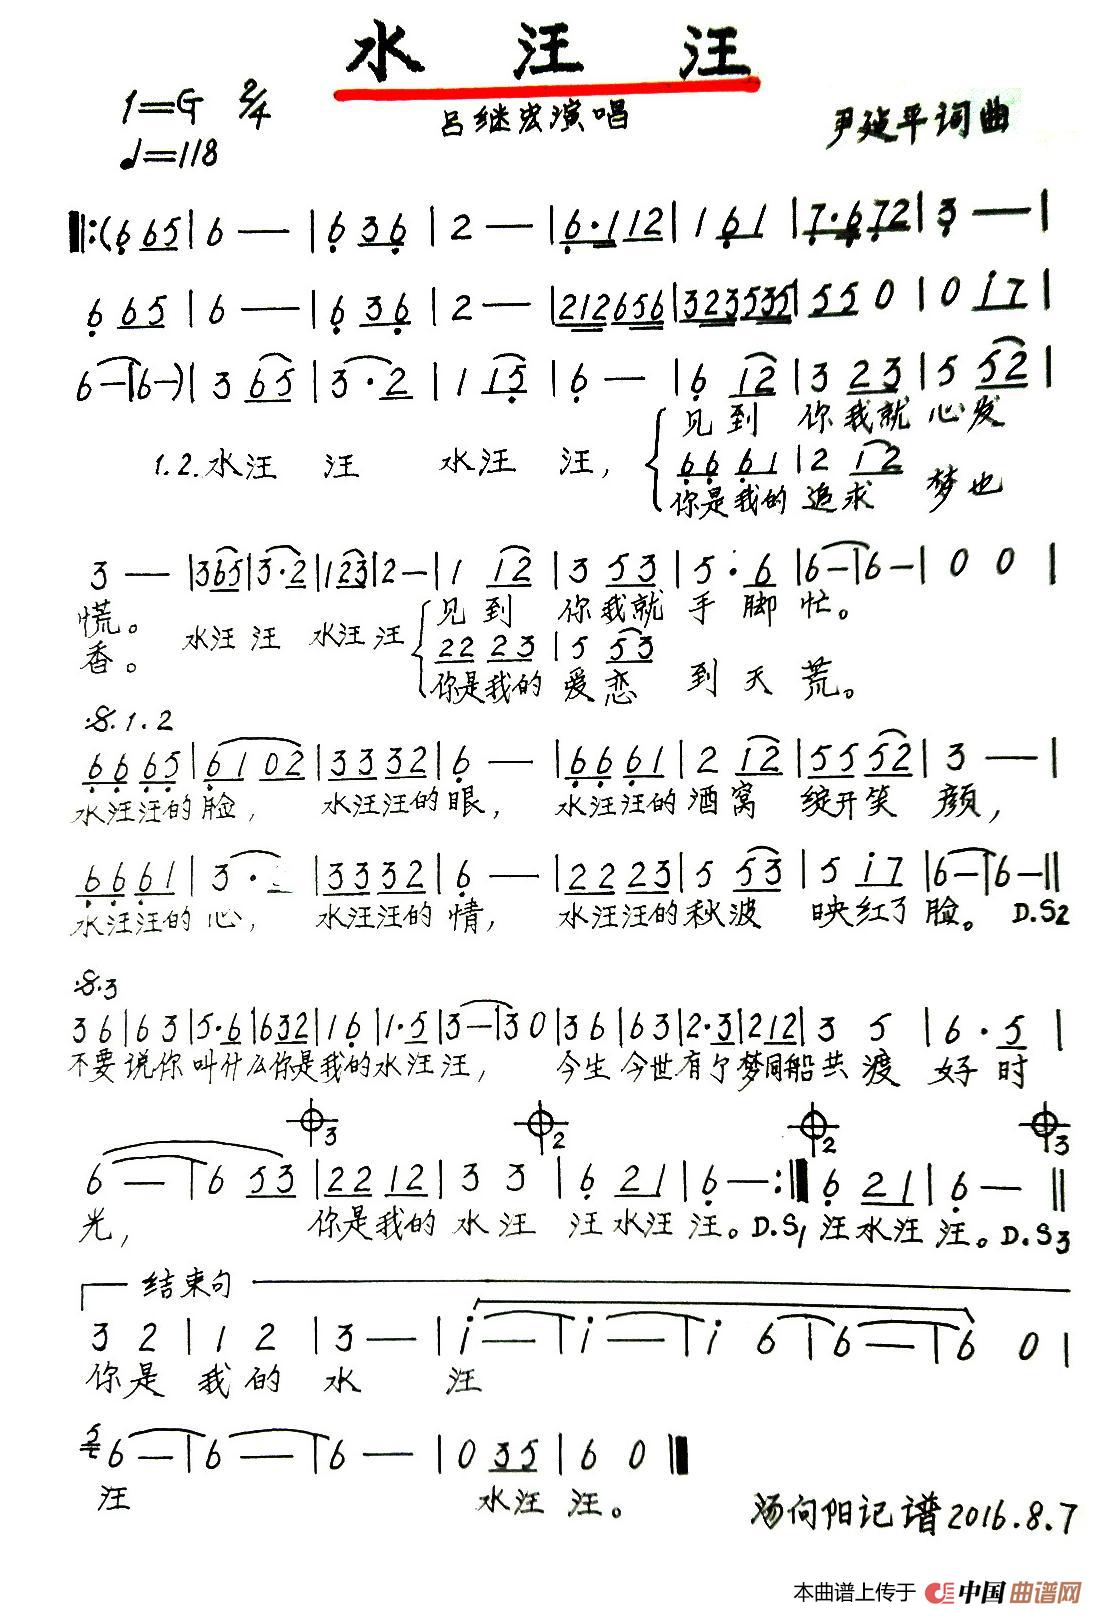 水汪汪
1=G 2/4
吕继宏演唱
尹建平词曲
♩=118
‖:(6 65|6 —|6 36|2 —|6·1 12|1 61|7·6 72|3 —|
6 65|6 —|6 36|2 —|212 656|323 535|55 0|0 i7|
6 —|6 —)|3 65|3·2|1 15|6 —|6 12|3 23|5 52|
见到 你我就 心发
1.2.水汪 汪 水汪 汪,
66 61|2 12
你是我的 追求 梦也
3 —|365|3·2|123|2 —|1 12|3 53|5·6|6 —|6 —|0 0|
慌。 水汪 汪 水汪 汪 见到 你我就 手脚 忙。
香。
22 23|5 53
你是我的 爱恋 到天 荒。
:S.1.2
66 65|61 02|33 32|6 —|66 61|2 12|55 52|3 —|
水汪汪的脸, 水汪汪的眼, 水汪汪的酒窝 绽开笑 颜,
66 61|3 ·|33 32|6 —|22 23|5 53|5 i7|6 —|6 —‖
水汪汪的 心, 水汪汪的 情, 水汪汪的秋波 映红了 脸。 D.S2
:S.3
3 6|6 3|5·6|632|1 6|1·5|3 —|3 0|3 6|6 3|2·3|212|3 5|6·5|
不要 说你 叫什么你是我的水汪 汪, 今生 今世有尔梦同船共 渡 好 时
3 2 2 3
6 —|6 53|22 12|3 3|6 21|6 —:‖6 21|6 —‖
光, 你是我的 水 汪 汪水汪 汪。D.S1 汪水汪 汪。D.S3
结束句
3 2|1 2|3 —|i —|i —|i 6|6 —|6 0|
你是 我的 水 汪
6 —|6 —|6 —|0 35|6 0‖
汪 水汪 汪。
汤向阳记谱2016.8.7
本曲谱上传于 中国曲谱网